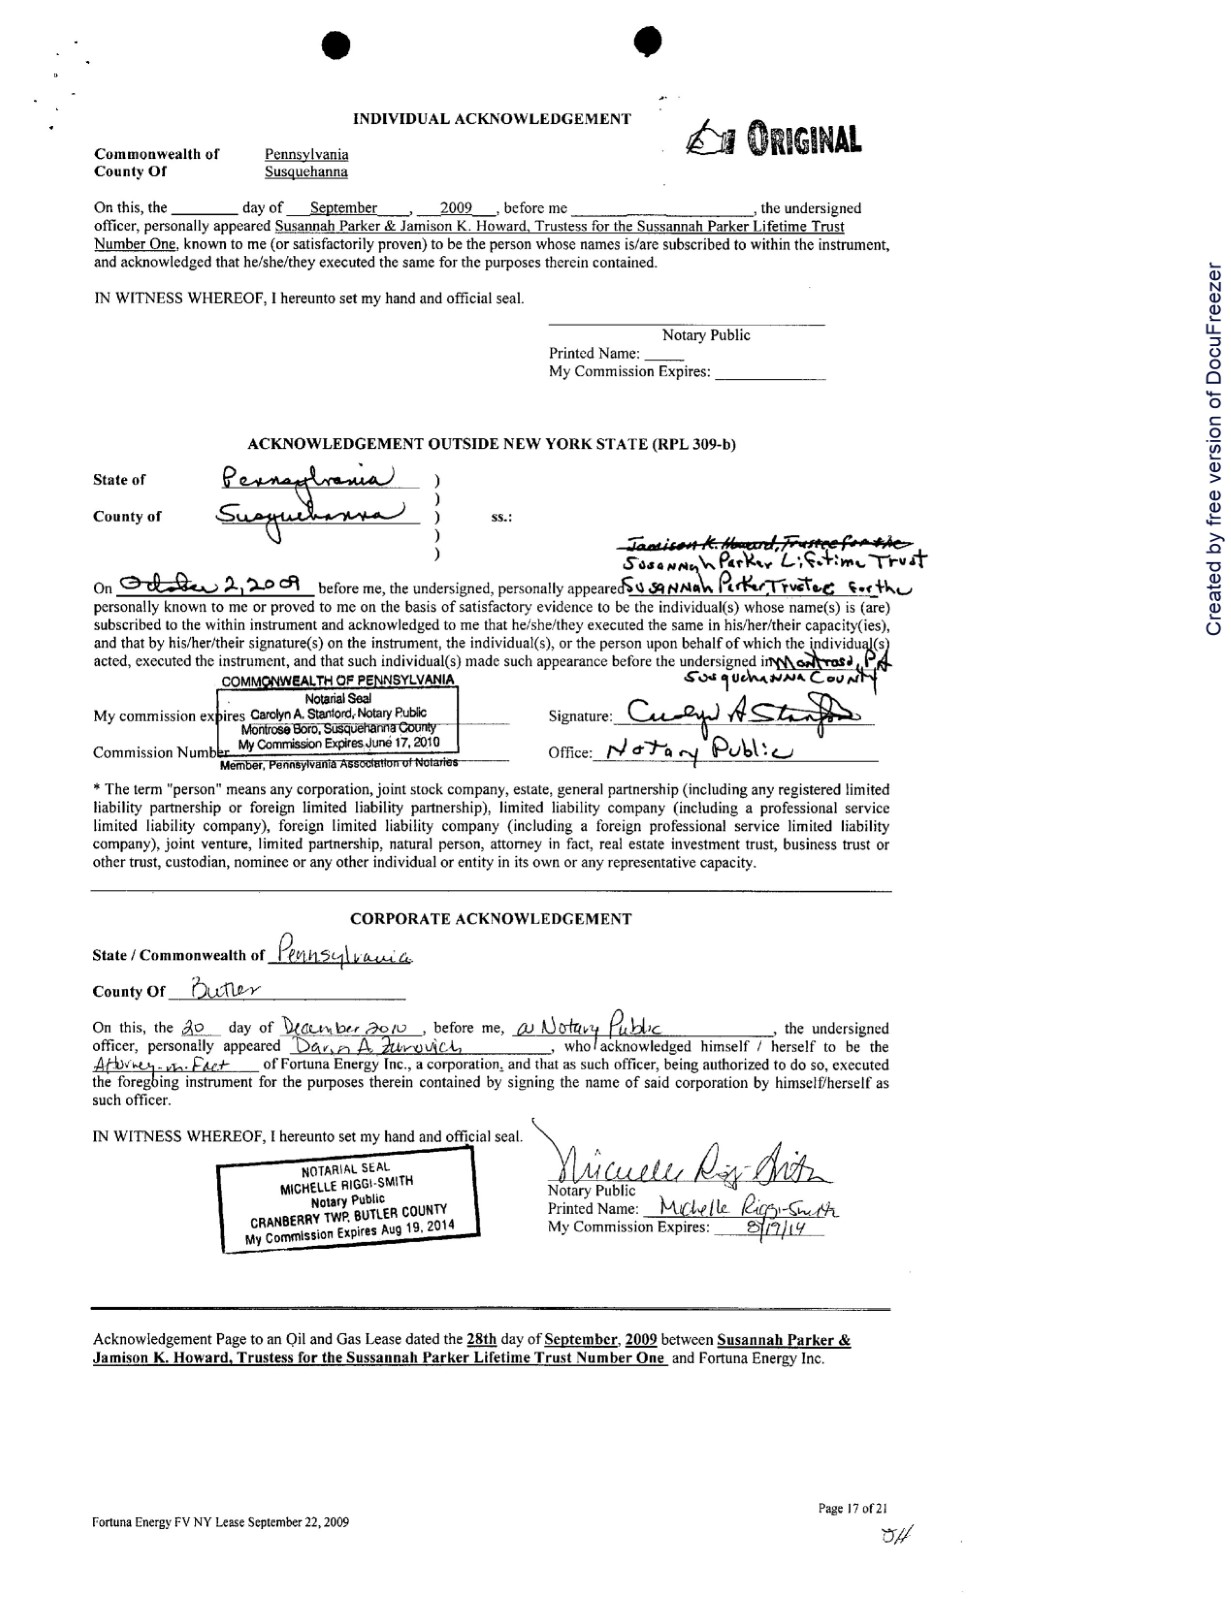 INDIVIDUAL ACKNOWLEDGEMENT
ORIGINAL
Commonwealth of Pennsylvania
County Of Susquehanna
On this, the ________ day of __September____, __2009__, before me ____________________, the undersigned
officer, personally appeared Susannah Parker & Jamison K. Howard, Trustess for the Sussannah Parker Lifetime Trust
Number One, known to me (or satisfactorily proven) to be the person whose names is/are subscribed to within the instrument,
and acknowledged that he/she/they executed the same for the purposes therein contained.
IN WITNESS WHEREOF, I hereunto set my hand and official seal.
Notary Public
Printed Name: _____
My Commission Expires: ______________
ACKNOWLEDGEMENT OUTSIDE NEW YORK STATE (RPL 309-b)
State of Pennsylvania )
)
County of Susquehanna ) ss.:
)
)
Jamison K. Howard, Trustee for the
Susannah Parker Lifetime Trust
On October 2, 2009 before me, the undersigned, personally appeared Susannah Parker, Trustee for the
personally known to me or proved to me on the basis of satisfactory evidence to be the individual(s) whose name(s) is (are)
subscribed to the within instrument and acknowledged to me that he/she/they executed the same in his/her/their capacity(ies),
and that by his/her/their signature(s) on the instrument, the individual(s), or the person upon behalf of which the individual(s)
acted, executed the instrument, and that such individual(s) made such appearance before the undersigned in Montrose, PA
Susquehanna County
COMMONWEALTH OF PENNSYLVANIA
Notarial Seal
My commission expires Carolyn A. Stanford, Notary Public Signature: Carolyn A Stanford
Montrose Boro, Susquehanna County
Commission Number My Commission Expires June 17, 2010 Office: Notary Public
Member, Pennsylvania Association of Notaries
* The term "person" means any corporation, joint stock company, estate, general partnership (including any registered limited
liability partnership or foreign limited liability partnership), limited liability company (including a professional service
limited liability company), foreign limited liability company (including a foreign professional service limited liability
company), joint venture, limited partnership, natural person, attorney in fact, real estate investment trust, business trust or
other trust, custodian, nominee or any other individual or entity in its own or any representative capacity.
CORPORATE ACKNOWLEDGEMENT
State / Commonwealth of Pennsylvania
County Of Butler
On this, the 20 day of December 2010, before me, a Notary Public, the undersigned
officer, personally appeared A. Zurovich, who acknowledged himself / herself to be the
Attorney-in-Fact of Fortuna Energy Inc., a corporation, and that as such officer, being authorized to do so, executed
the foregoing instrument for the purposes therein contained by signing the name of said corporation by himself/herself as
such officer.
IN WITNESS WHEREOF, I hereunto set my hand and official seal.
NOTARIAL SEAL
MICHELLE RIGGI-SMITH
Notary Public
CRANBERRY TWP, BUTLER COUNTY
My Commission Expires Aug 19, 2014
Michelle Riggi-Smith
Notary Public
Printed Name: Michelle Riggi-Smith
My Commission Expires: 8/19/14
Acknowledgement Page to an Oil and Gas Lease dated the 28th day of September, 2009 between Susannah Parker &
Jamison K. Howard, Trustess for the Sussannah Parker Lifetime Trust Number One and Fortuna Energy Inc.
Page 17 of 21
Fortuna Energy FV NY Lease September 22, 2009
JH
Created by free version of DocuFreezer